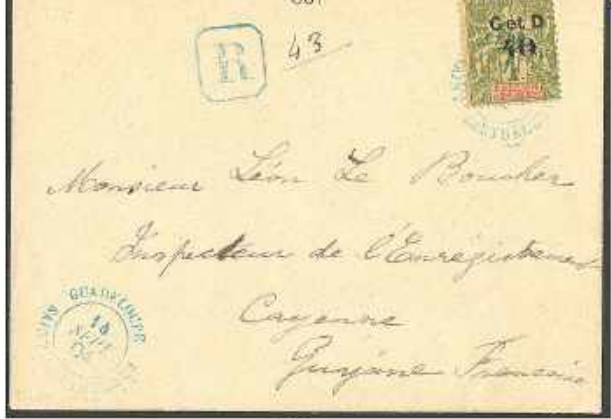 R
43
G et D
40
Monsieur Léon Le Boucher
Inspecteur de l'Enregistrement
Cayenne
Guyane Française
GUADELOUPE
15